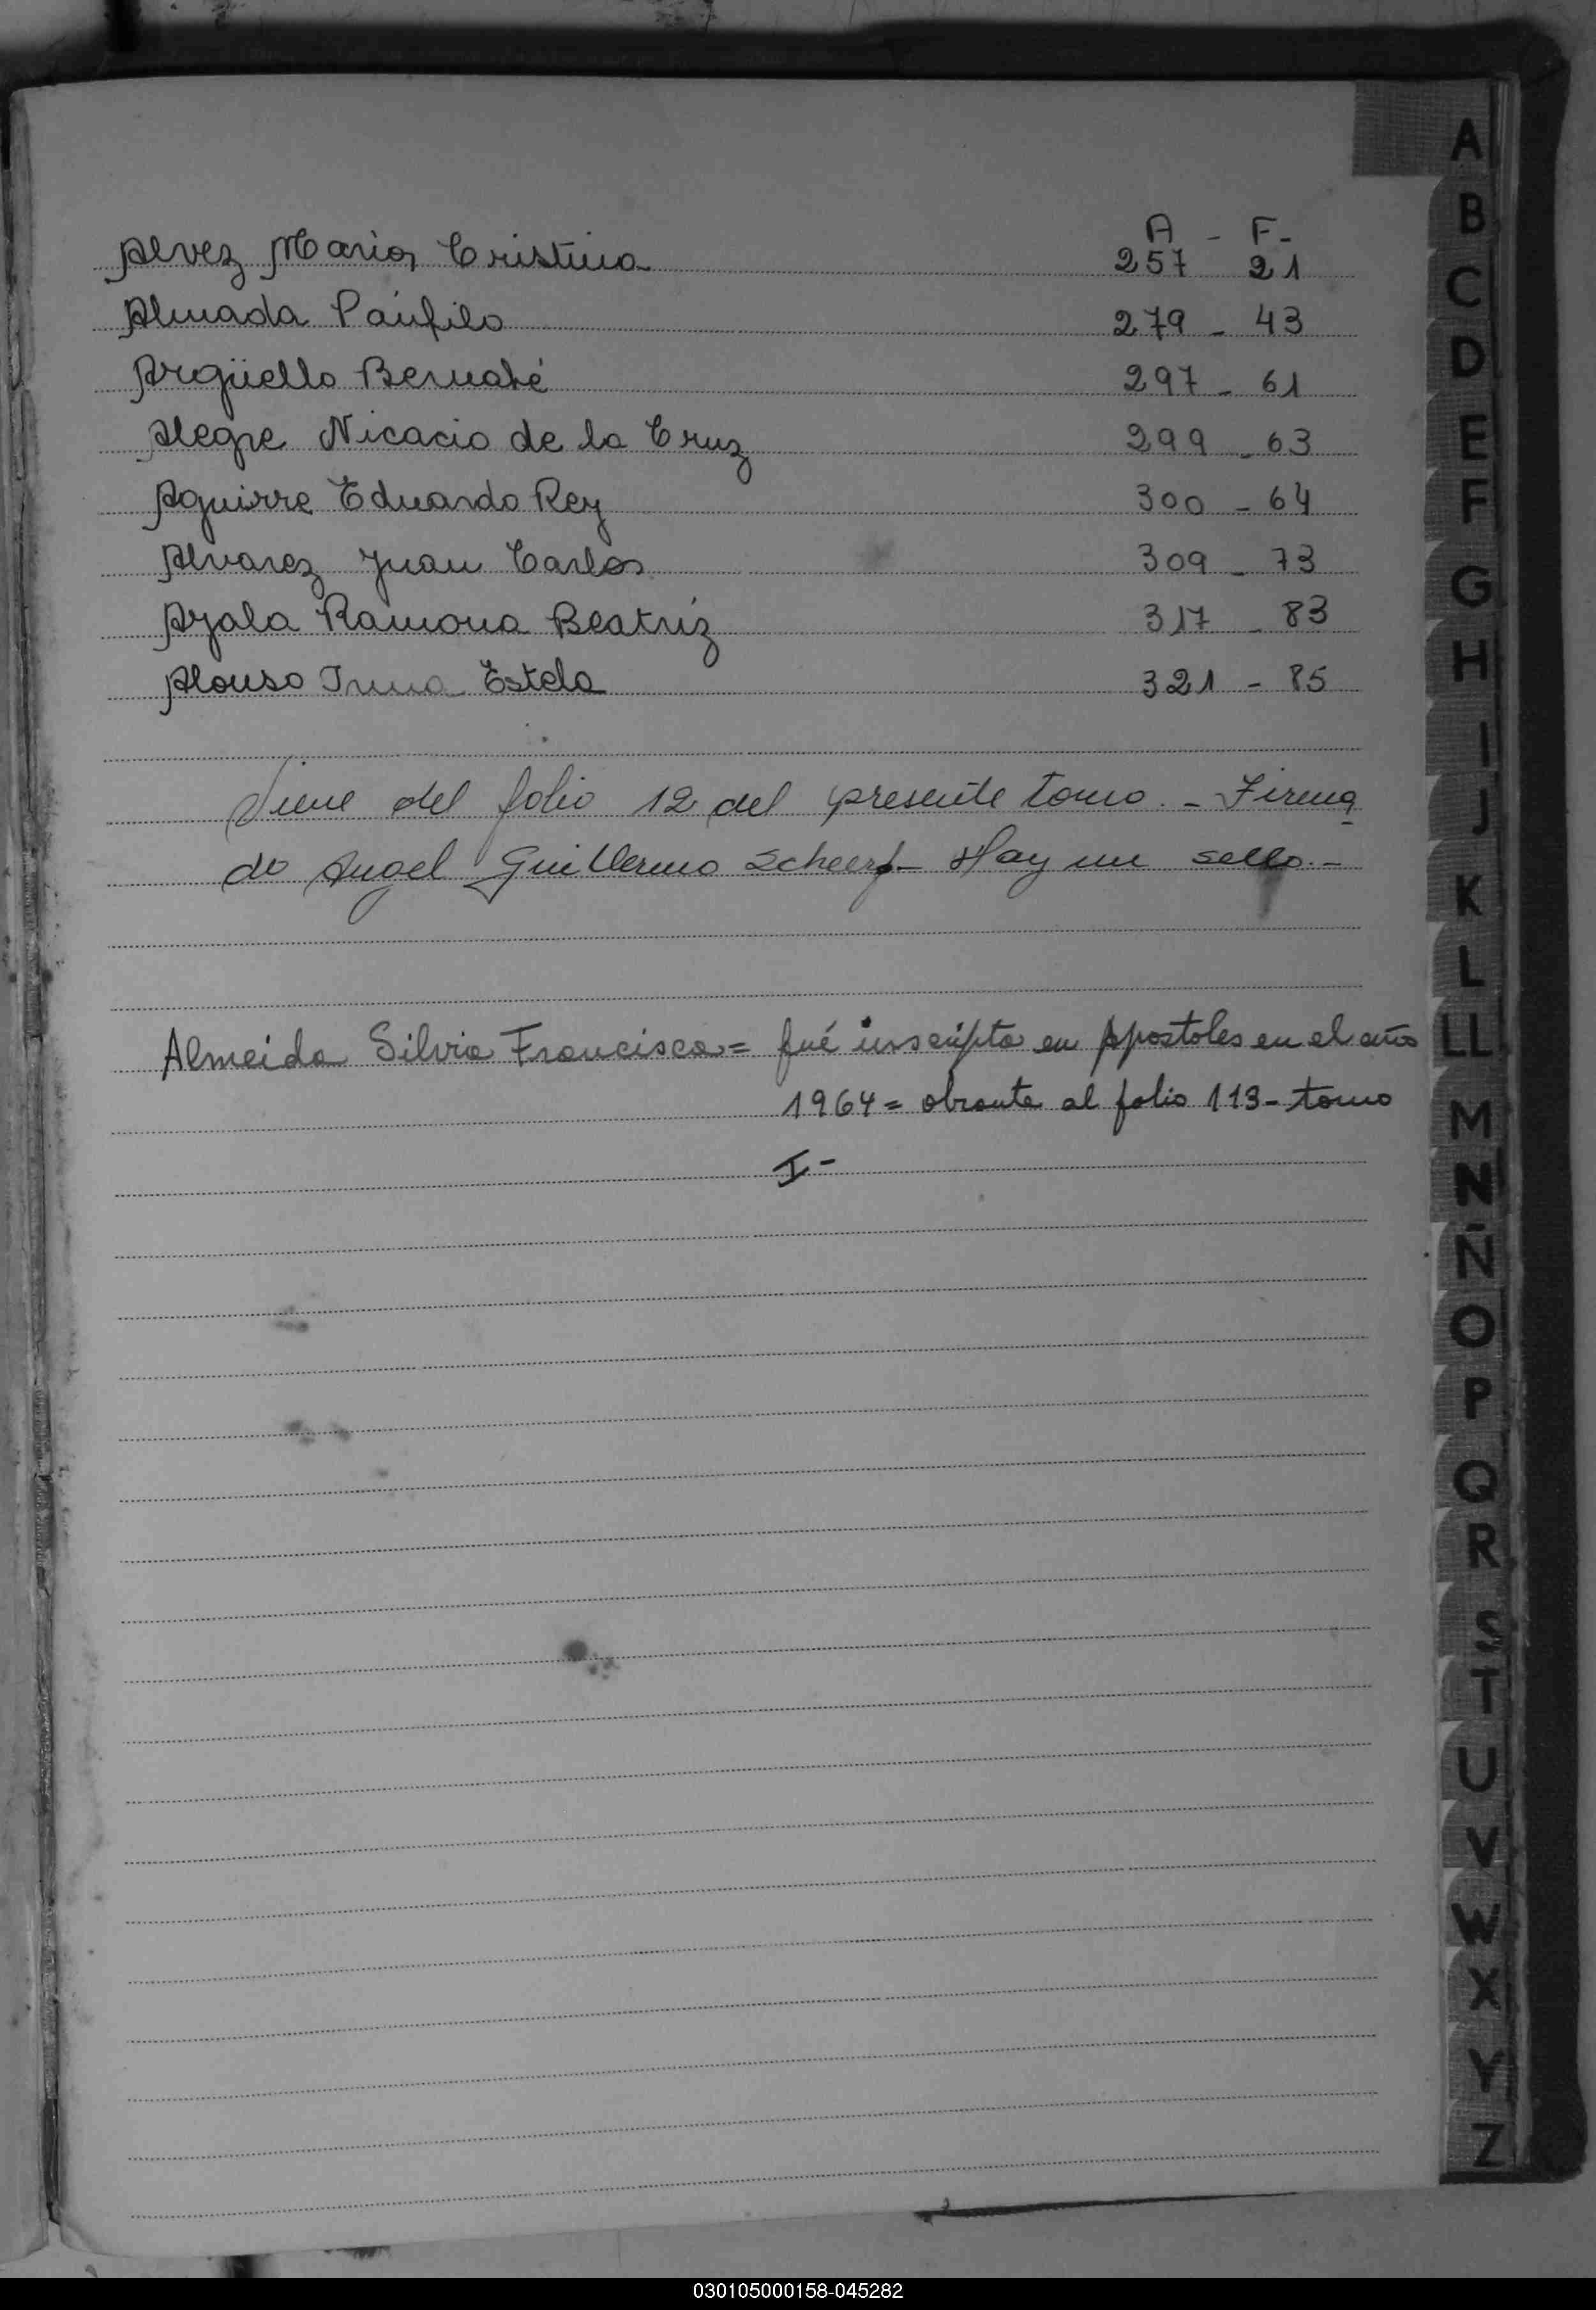 A - F-
Alvez Maria Cristina 257 21
Almada Pánfilo 279 - 43
Argüello Bernabé 297 - 61
Alegre Nicacio de la Cruz 299 - 63
Aguirre Eduardo Rey 300 - 64
Alvarez Juan Carlos 309 - 73
Ayala Ramona Beatriz 317 - 83
Alonso Irma Estela 321 - 85
Viene del folio 12 del presente tomo. - Firma
do Angel Guillermo Scheerf - Hay un sello. -
Almeida Silvia Francisca = fué inscripta en Apostoles en el año
1964 = obrante al folio 113 - tomo
I -
A
B
C
D
E
F
G
H
I
J
K
L
LL
M
N
Ñ
O
P
Q
R
S
T
U
V
W
X
Y
Z
030105000158-045282